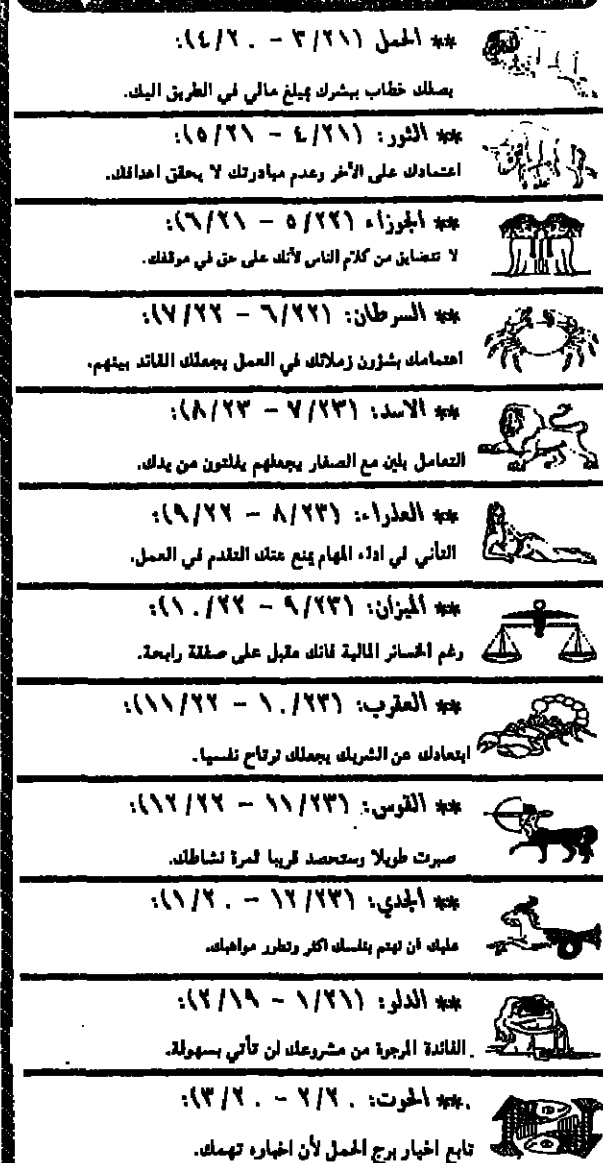 ** الحمل (٣/٢١ - ٤/٢٠):
يصلك خطاب يبشرك بمبلغ مالي في الطريق اليك.
** الثور: (٤/٢١ - ٥/٢١):
اعتمادك على الآخر وعدم مبادرتك لا يحقق اهدافك.
** الجوزاء (٥/٢٢ - ٦/٢١):
لا تتضايق من كلام الناس لأنك على حق في موقفك.
** السرطان: (٦/٢٢ - ٧/٢٢):
اهتمامك بشؤون زملائك في العمل يجعلك القائد بينهم.
** الاسد: (٧/٢٣ - ٨/٢٣):
التعامل بلين مع الصغار يجعلهم يفلتون من يدك.
** العذراء: (٨/٢٣ - ٩/٢٢):
التأني في اداء المهام يمنع عنك التقدم في العمل.
** الميزان: (٩/٢٣ - ١٠/٢٢):
رغم الخسائر المالية فانك مقبل على صفقة رابحة.
** العقرب: (١٠/٢٣ - ١١/٢٢):
ابتعادك عن الشريك يجعلك ترتاح نفسيا.
** القوس: (١١/٢٣ - ١٢/٢٢):
صبرت طويلا وستحصد قريبا ثمرة نشاطك.
** الجدي: (١٢/٢٣ - ١/٢٠):
عليك ان تهتم بنفسك اكثر وتطور مواهبك.
** الدلو: (١/٢١ - ٢/١٩):
الفائدة المرجوة من مشروعك لن تأتي بسهولة.
** الحوت: (٢/٢٠ - ٣/٢٠):
تابع اخبار برج الحمل لأن اخباره تهمك.